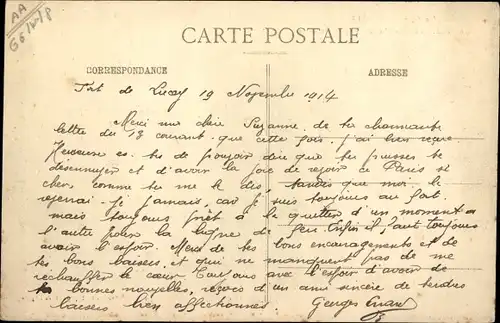 AA
CARTE POSTALE
CORRESPONDANCE
ADRESSE
Fort de Lucey 19 Novembre 1914
Merci ma chère Suzanne de ta charmante
lettre du 13 courant que cette fois j'ai bien reçue
Heureuse es-tu de pouvoir dire que tu puisses te
désennuyer et d'avoir la joie de revoir ce Paris si
cher comme tu me le dis, tandis que moi le
reverrai-je jamais, car je suis toujours au fort
mais toujours prêt à le quitter d'un moment à
l'autre pour la ligne de feu. Enfin il faut toujours
avoir l'espoir. Merci de tes bons encouragements et de
tes bons baisers et qui ne manquent pas de me
réchauffer le cœur. Toujours avec l'espoir d'avoir de
tes bonnes nouvelles, reçois d'un ami sincère de tendres
baisers bien affectionnés. Georges